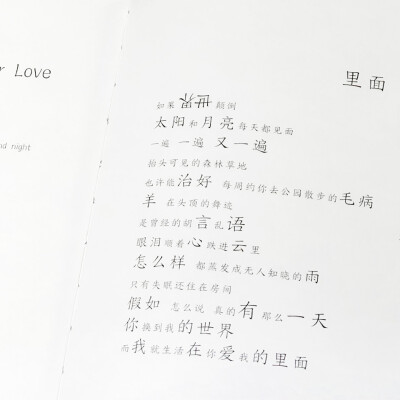 r Love
nd night
里面
如果 世界 颠倒
太阳和月亮每天都见面
一遍 一遍 又一遍
抬头可见的森林草地
也许能治好 每周约你去公园散步的毛病
羊 在头顶的舞迹
是曾经的胡言乱语
眼泪顺着心跌进云里
怎么样 都蒸发成无人知晓的雨
只有失眠还住在房间
假如 怎么说 真的有那么一天
你换到我的世界
而我就生活在你爱我的里面